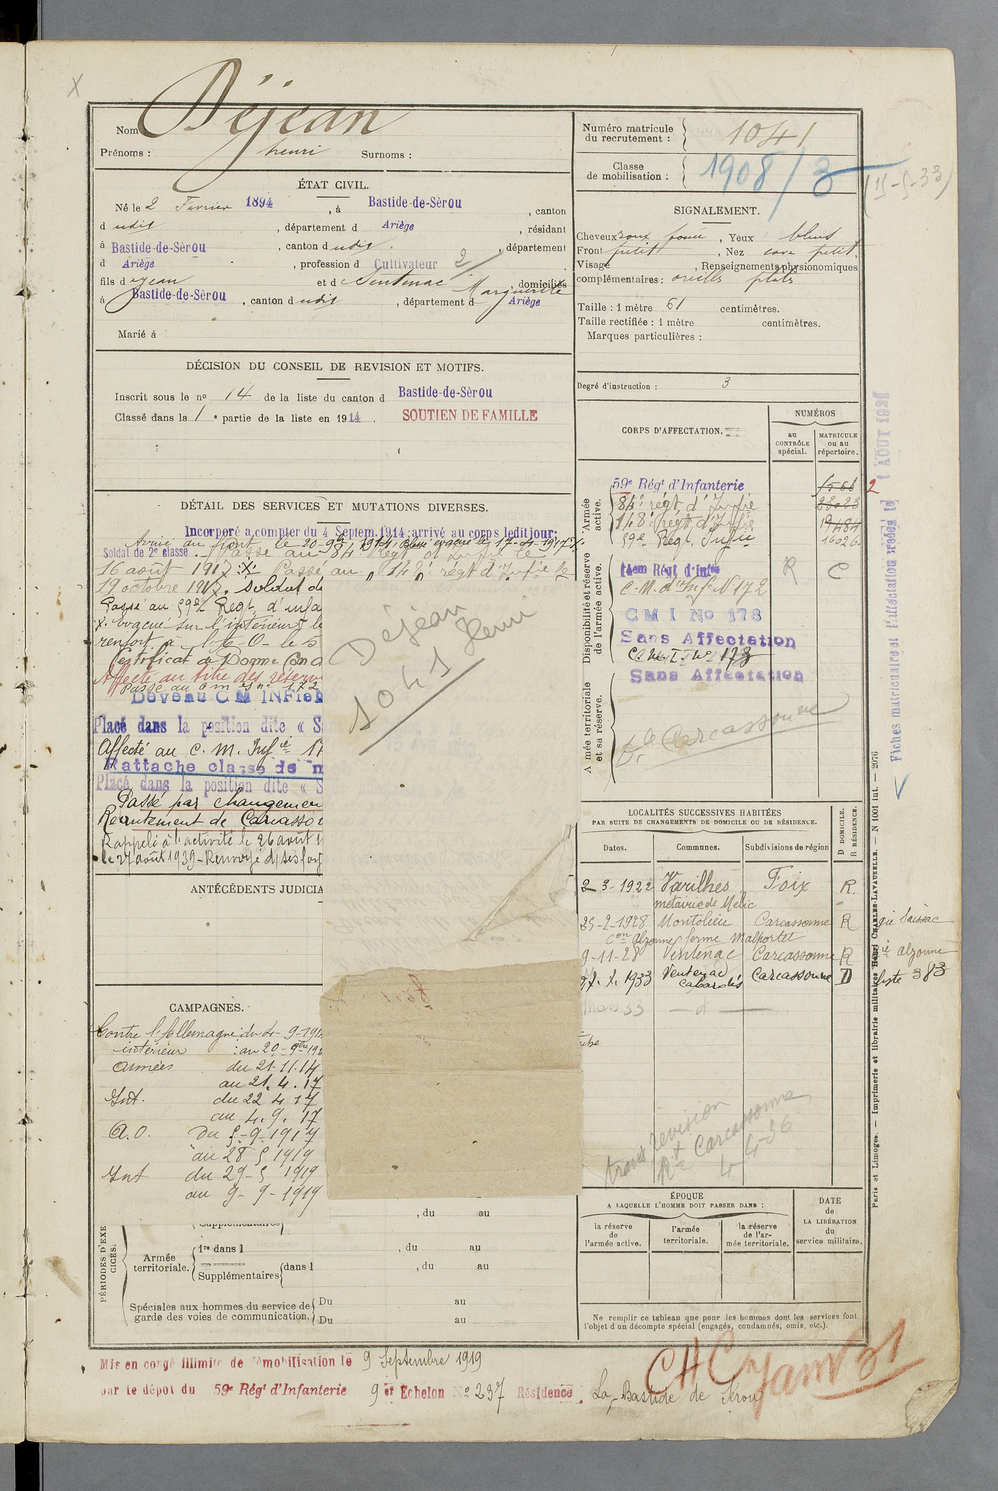 Nom Déjean
Prénoms : henri Surnoms :
ÉTAT CIVIL.
Né le 2 Février 1894, à Bastide-de-Sèrou, canton
d udit, département d Ariège, résidant
à Bastide-de-Sèrou, canton d udit, département
d Ariège, profession d Cultivateur 2
fils d Jean et d Sentenac Marguerite domiciliés
à Bastide-de-Sèrou, canton d udit, département d Ariège
Marié à
DÉCISION DU CONSEIL DE REVISION ET MOTIFS.
Inscrit sous le nº 14 de la liste du canton d Bastide-de-Sèrou
Classé dans la 1e partie de la liste en 1914. SOUTIEN DE FAMILLE
DÉTAIL DES SERVICES ET MUTATIONS DIVERSES.
Incorporé a compter du 4 Septem. 1914: arrivé au corps ledit jour;
Soldat de 2e classe
Passé au 84e Régt d'Infie le
16 août 1917. X. Passé au 14 régt d'Infie le
19 octobre 1917. Soldat de
Passé au 59e Régt d'infa
X. évacué sur l'intérieur le
Certificat de Bonne Cond
Affecté au titre des réserv
Passé au C M 172
Devenu C M INFie N
Placé dans la position dite « S
Affecté au C. M. Infie 17
Rattache classe de m
Placé dans la position dite « S
Passé par changemen
Recrutement de Carcasso
Rappelé à l'activité le 26 août 1
le 27 août 1939 - Renvoyé ds ses foy
Déjean Henri
1041
ANTÉCÉDENTS JUDICIA
CAMPAGNES.
Contre l'Allemagne: du 4-9-191
intérieur : au 20-9bre 191
Armées du 21.11.14
au 21.4.17
Int. du 22 4 17
au 4.9.17
A.O. Du 5-9-1917
au 28 5 1919
Int du 29-5 1919
au 9-9-1919
, du au
PÉRIODES D'EXE
CICES.
Supplémentaires
Armée territoriale. 1re dans l , du au
Supplémentaires dans l , du au
Spéciales aux hommes du service de garde des voies de communication. Du au
Du au
Mis en congé illimité de démobilisation le 9 Septembre 1919
par le dépôt du 59e Régt d'Infanterie 9e Echelon Nº 237 Résidence La Bastide de Sérou
Numéro matricule du recrutement : 1041
Classe de mobilisation : 1908/3
(15-5-33)
SIGNALEMENT.
Cheveux roux foncé, Yeux bleus
Front petit, Nez cave petit
Visage , Renseignements physionomiques
complémentaires : oreilles plats
Taille : 1 mètre 61 centimètres.
Taille rectifiée : 1 mètre centimètres.
Marques particulières :
Degré d'instruction : 3
CORPS D'AFFECTATION.
NUMÉROS
au CONTRÔLE spécial.
MATRICULE ou au répertoire.
Armée active.
59e Régt d'Infanterie
84e régt d'Infie
14e régt d'Infie
59e Régt Infie
2
Disponibilité et réserve de l'armée active.
Régt d'Infie R C
C.M. d'Infie N 172
C M I No 173
Sans Affectation
C.M.I. Nº 173
Sans Affectation
Armée territoriale et sa réserve.
Carcassonne
Fiches matriculaire et d'affectation créées le 1 AOUT
LOCALITÉS SUCCESSIVES HABITÉES
PAR SUITE DE CHANGEMENTS DE DOMICILE OU DE RÉSIDENCE.
Dates. Communes. Subdivisions de région D DOMICILE. R RÉSIDENCE.
2-3-1922 Varilhes Foix R
métairie de Mélic
25-2-1928 Montolieu Carcassonne R
Con Alzonne ferme Malportet
9-11-28 Ventenac Carcassonne R
1933 Ventenac Cabardès Carcassonne D
liste 383
Mars 33 — d —
trans révision
Rt Carcassonne
4 4-36
ÉPOQUE
A LAQUELLE L'HOMME DOIT PASSER DANS :
la réserve de l'armée active.
l'armée territoriale.
la réserve de l'armée territoriale.
DATE de LA LIBÉRATION du service militaire.
Ne remplir ce tableau que pour les hommes dont les services font
l'objet d'un décompte spécial (engagés, condamnés, omis, etc.).
Paris et Limoges. — Imprimerie et librairie militaires Henri CHARLES-LAVAUZELLE. — N 1001 int. — 2076